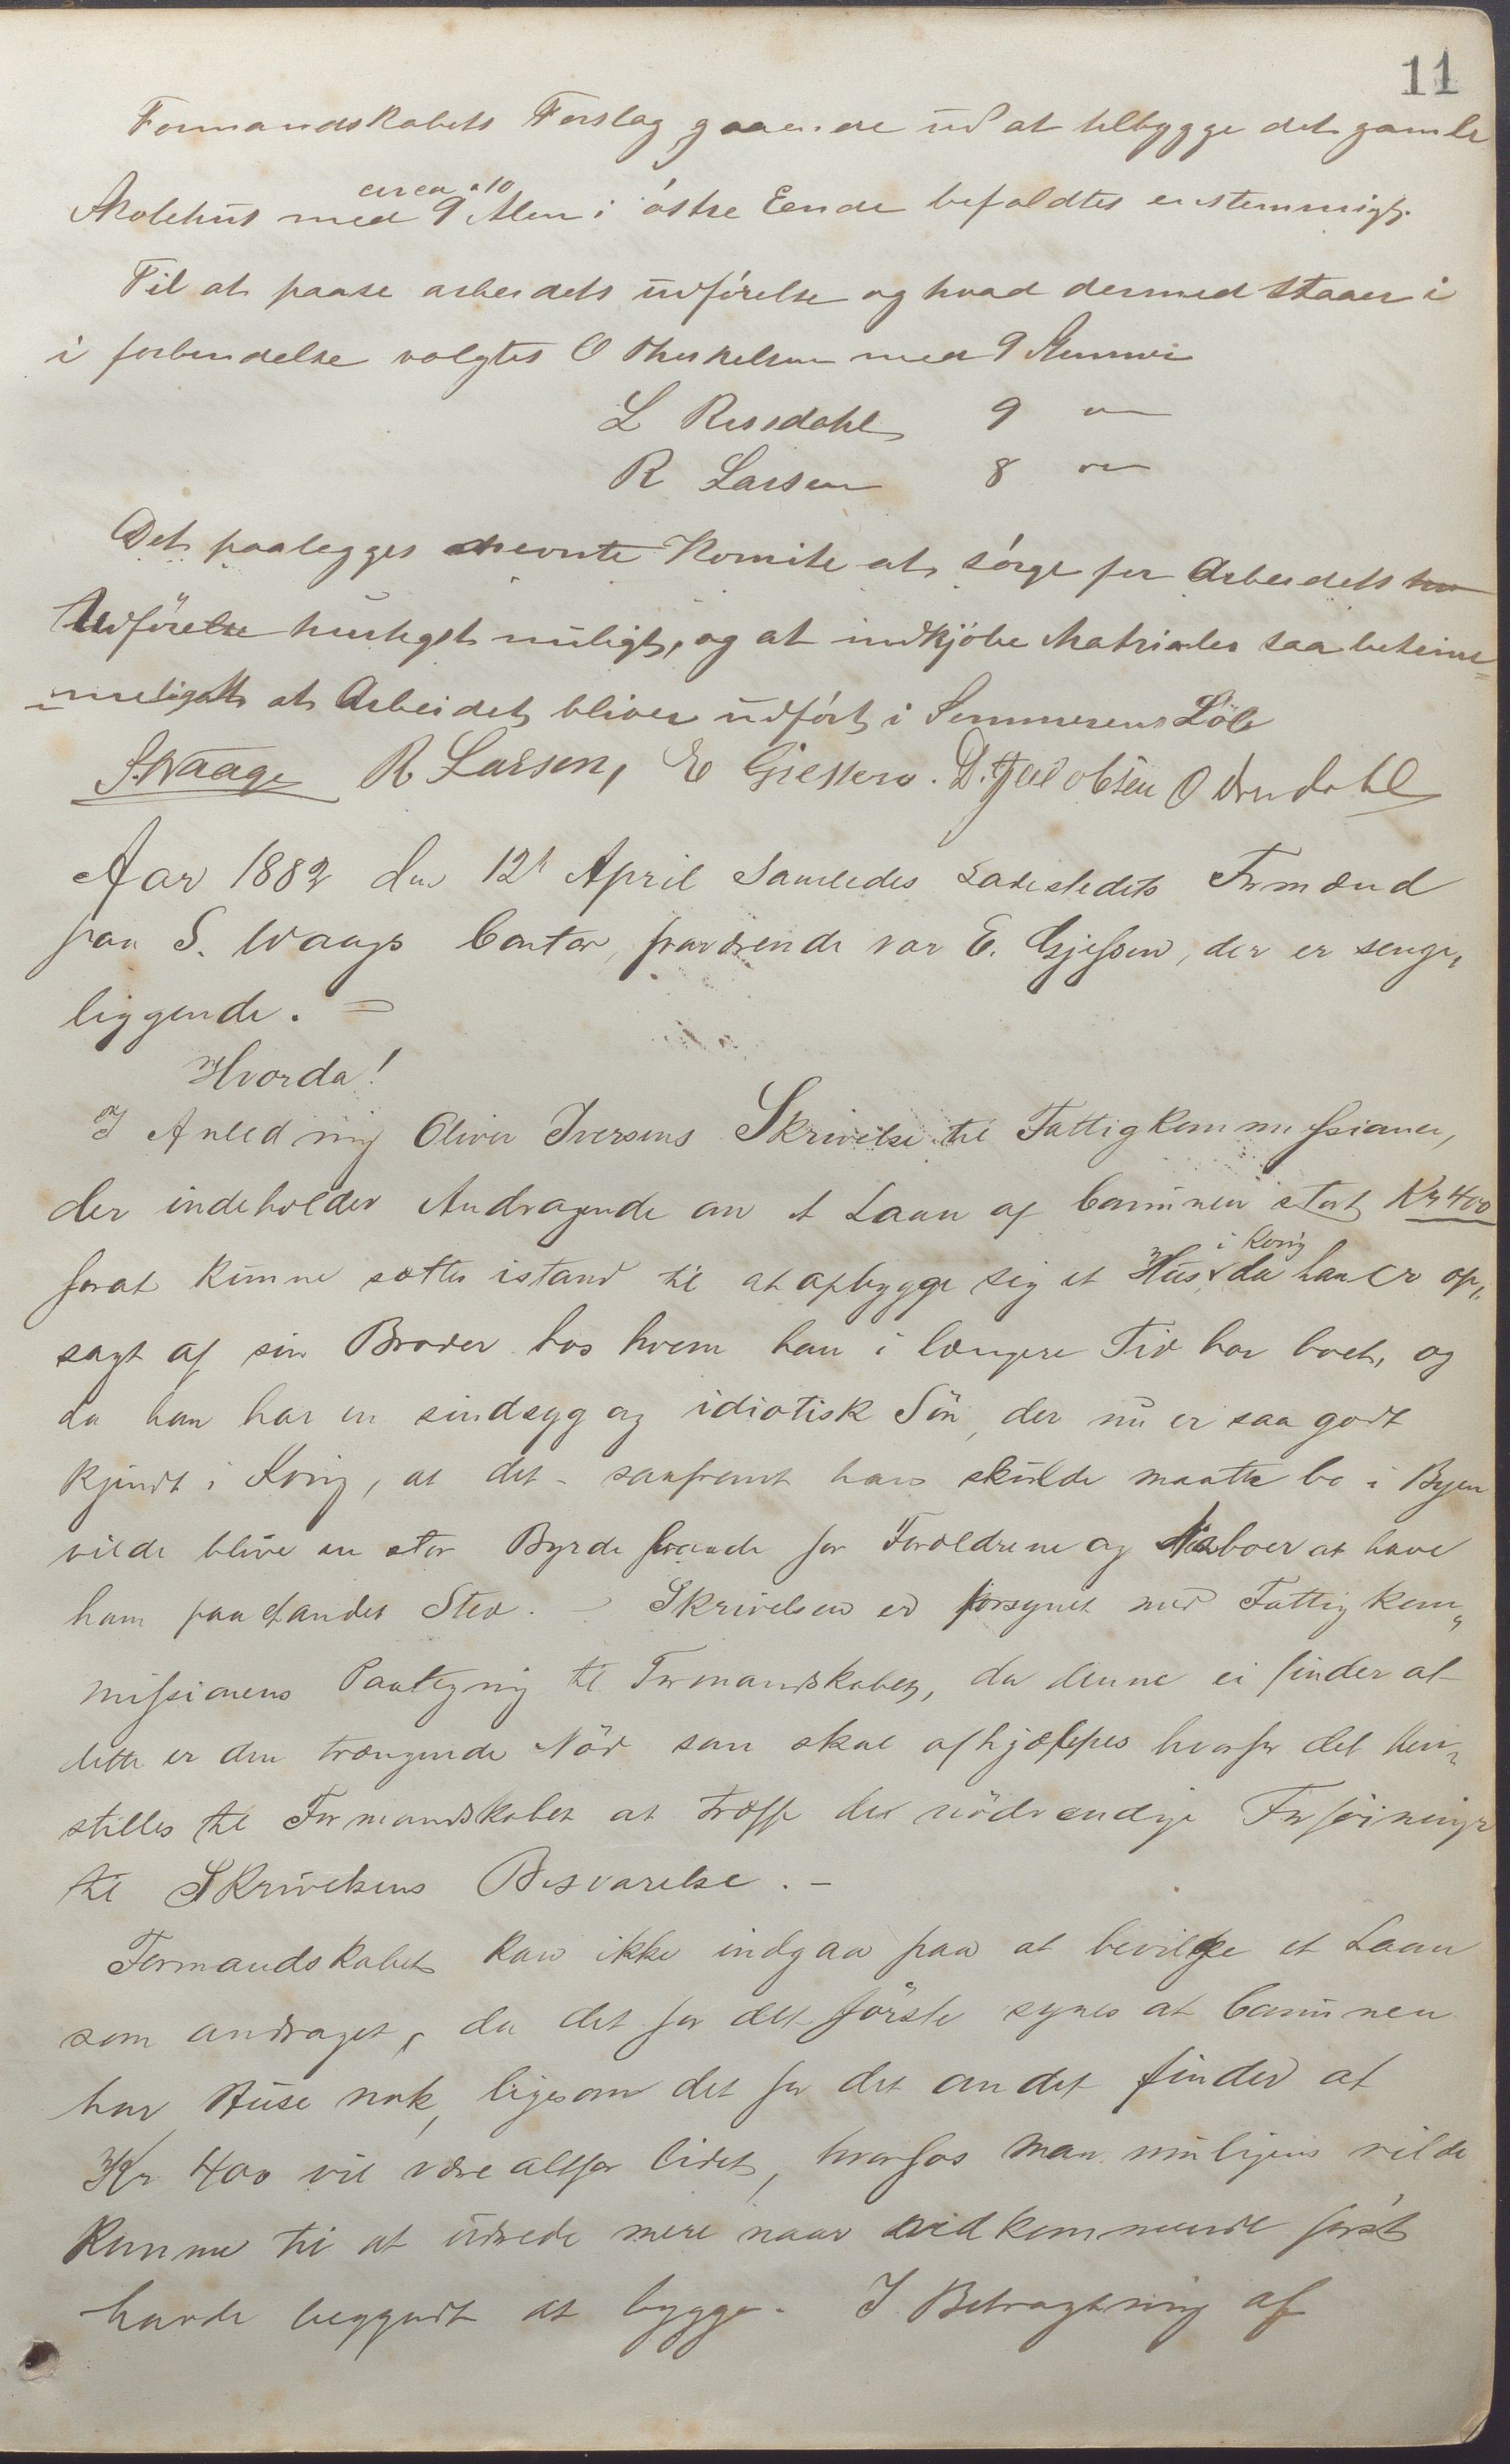 11
Formandskabets Forslag gaaende ud at tilbygge det gamle
circa a 10
Skolehus med 9 Alen i østre Eende befaldtes enstemmigt.
Til at paase arbeidets udførelse og hvad dermed staaer i
i forbindelse valgtes O Therkelsen med 9 Stemmer
L Rissdahl 9 "
R Larsen 8 "
Det paalegges nevnte Komite at sörge for Arbeidets
Udförelse hurtigst muligt, og at indkjöbe Matrialer saa betime
meligst at Arbeidet bliver udført i Sommerens Löb
S. Waage R Larsen, E Giessen. D. Jacobsen O Aendahl
Aar 1882 den 12t April samledes Ladestedets Formænd
paa S. Waages Contor, fraværende var E. Gjessen, der er senge„
liggende. =
Hvorda!
I Anledning Oliver Iversens Skrivelse til Fattigkommissionen,
der indeholder Andragende om et Laan af Communen stort Kr 400
i Kovig
forat kunne sættes istand til at opbygge sig et Hus, da han er op„
sagt af sin Broder hos hvem han i længere Tid har boet, og
da han har en sindsyg og idiotisk Sön, der nu er saa godt
kjendt i Kovig, at det - saafremt han skulde maatte bo i Byen
vilde blive en stor Byrde for Foreldrene og Naboer at have
ham paa et andet Sted. Skrivelsen er forsynet med Fattigkom„
missionens Paategning til Formandskabet, da denne ei finder at
dette er den trængende Nöd som skal afhjælpes hvorfor det hen„
stilles til Formandskabet at træffe det nödvendige Forföininger
til Skrivelsens Besvarelse. -
Formandskabet kan ikke indgaa paa at bevilge et Laan
som andraget, da det for det förste synes at Communen
har Huse nok, ligesom det for det andet finder at
Kr 400 vil være altfor lidet, hvorfor man muligens vilde
komme til at udrede mere naar vedkommende först
havde begyndt at bygge. I Betragtning af